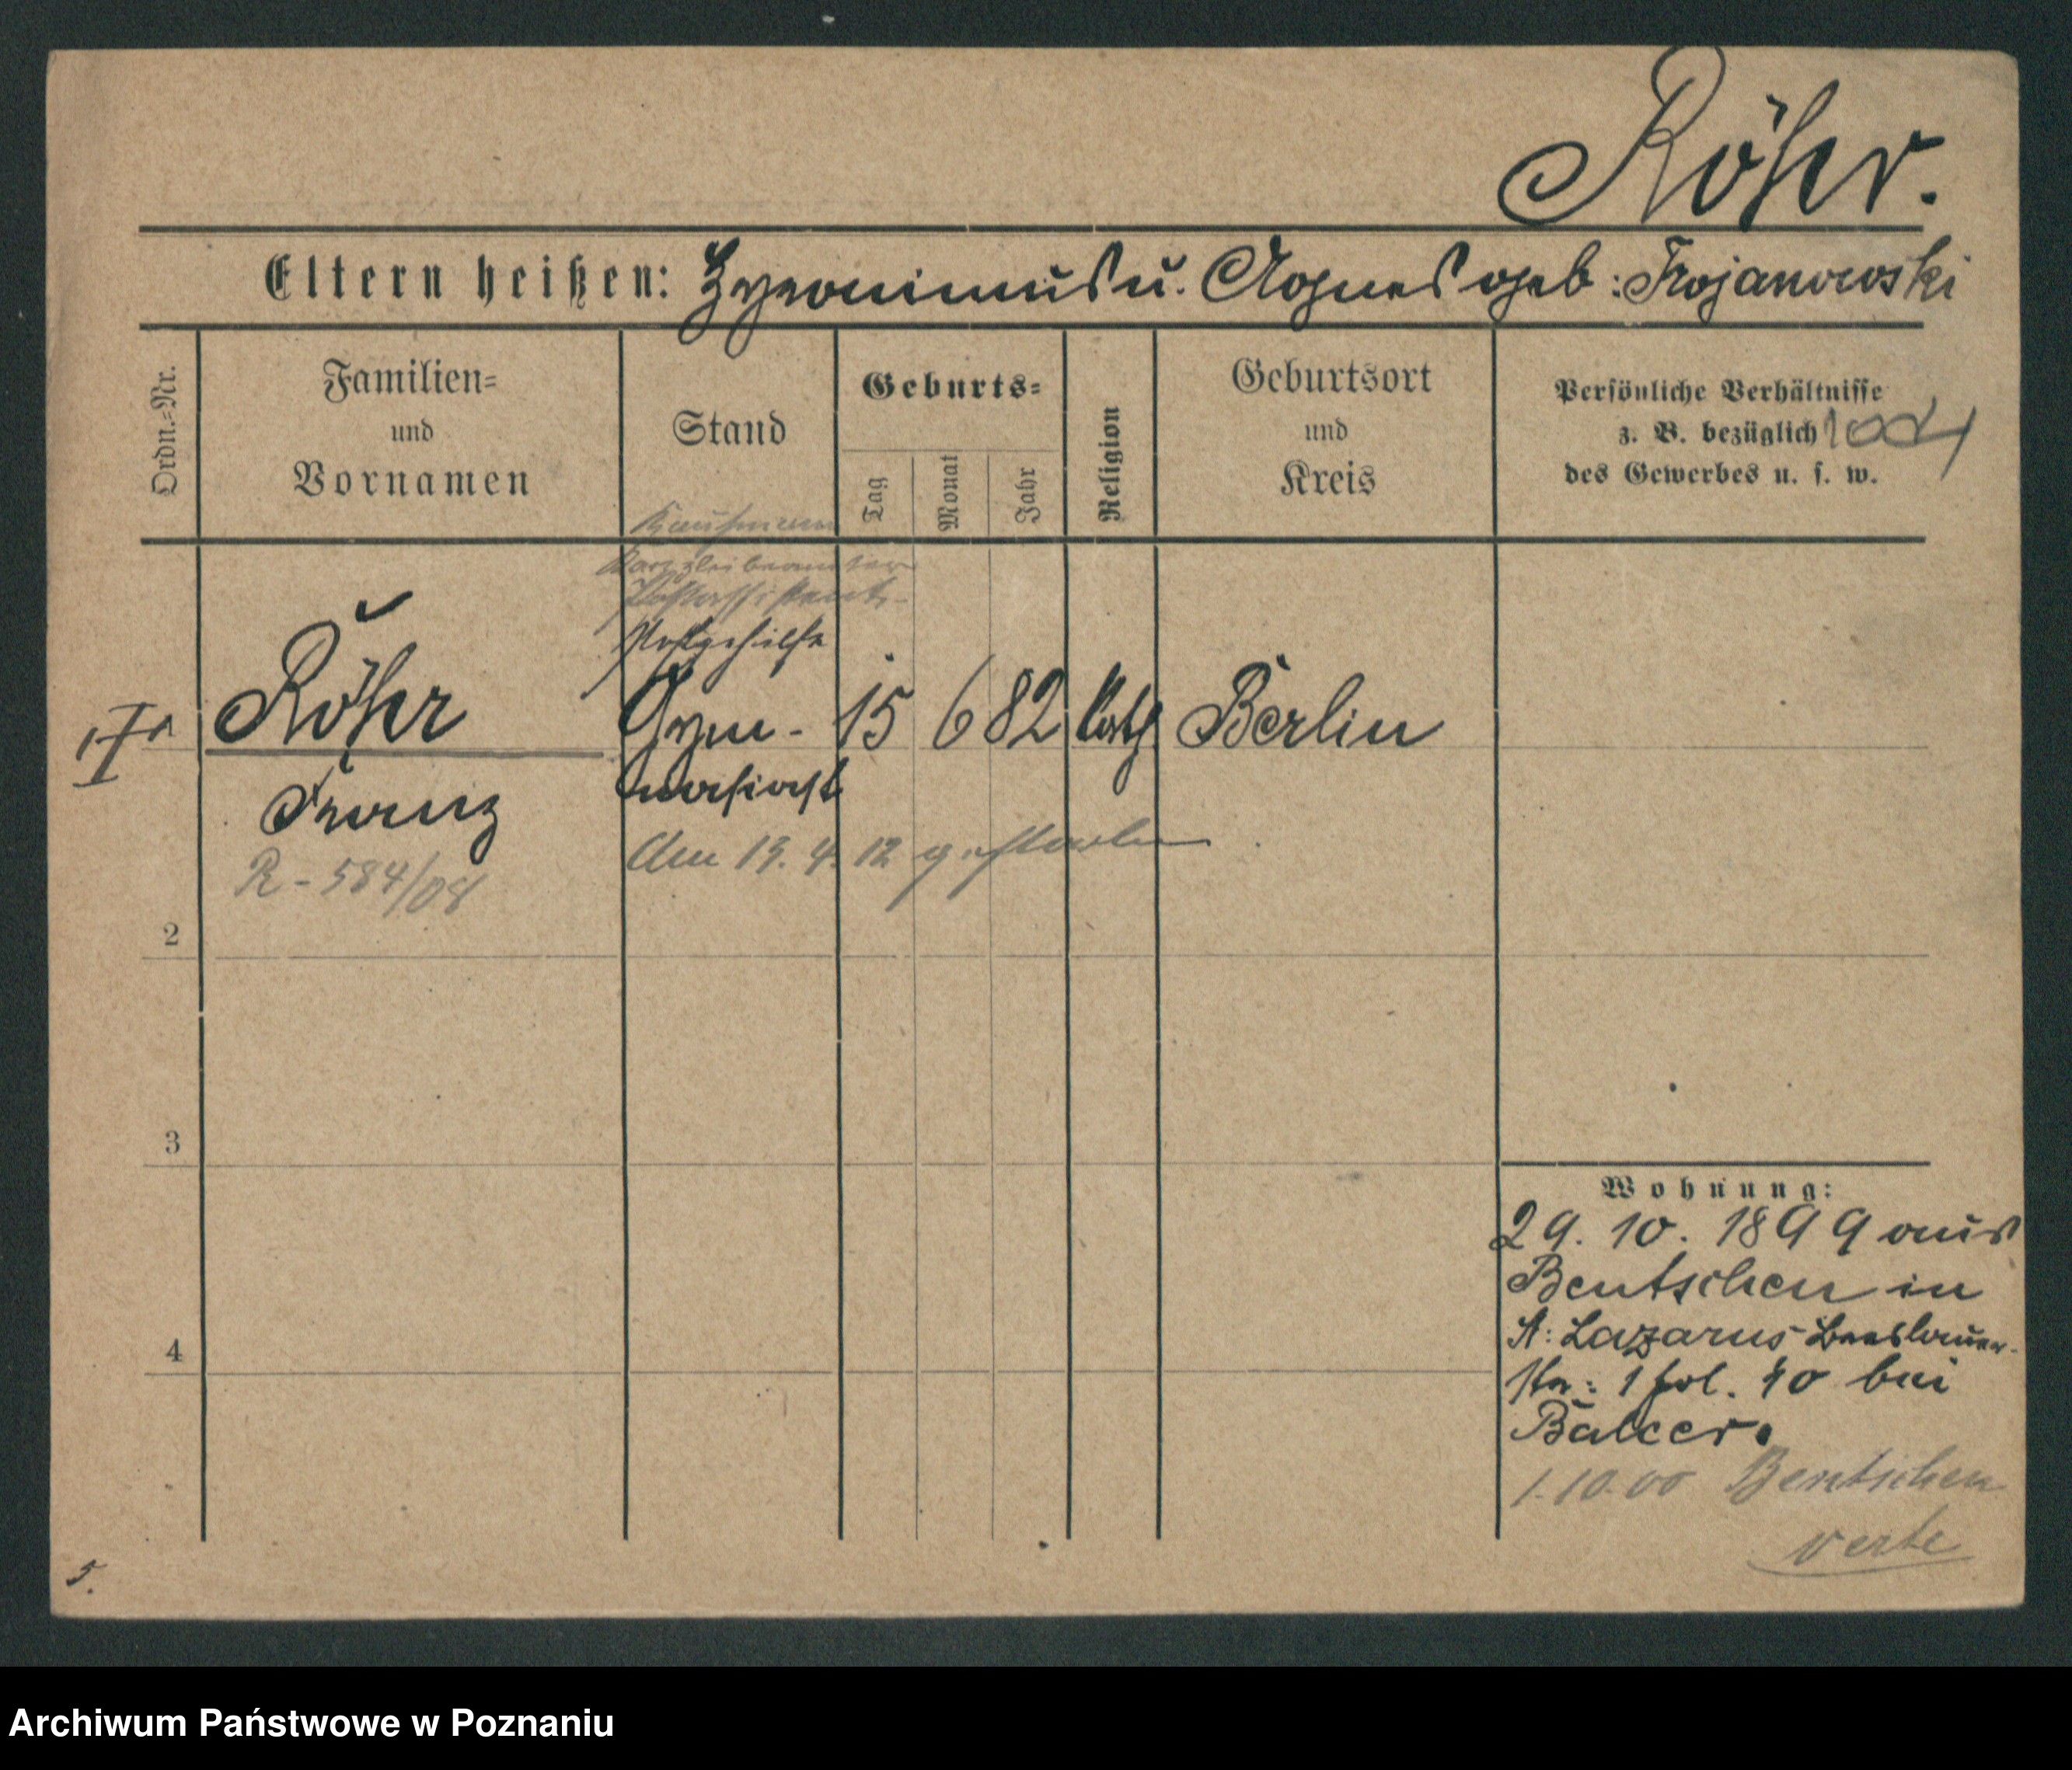 Röhr.
Eltern heißen: Hyronimus u. Agnes geb: Trojanowski
Ordn.=Nr.
Familien=
und
Vornamen
Stand
Geburts=
Tag
Monat
Jahr
Religion
Geburtsort
und
Kreis
Persönliche Verhältnisse
z. B. bezüglich
des Gewerbes u. s. w.
Kaufmann
Kanzleibeamter
Postassistent
Postgehilfe
Röhr Gym- 15 6 82 kath Berlin
Franz nasiast
Am 19. 4. 12 gestorben
R - 584/08
2
3
4
Wohnung:
29. 10. 1899 aus
Bentschen in
St: Lazarus Breslauer-
str: 1 pol. 40 bei
Balcer.
1.10.00 Bentschen
verte
5.
Archiwum Państwowe w Poznaniu